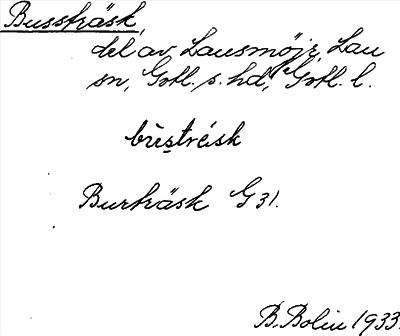 Bussträsk,
del av Lausmyr, Lau
sn, Gotl. s. hd, Gotl. l.
bùs̱trèsk
Burträsk G 31.
B. Bolin 1933.